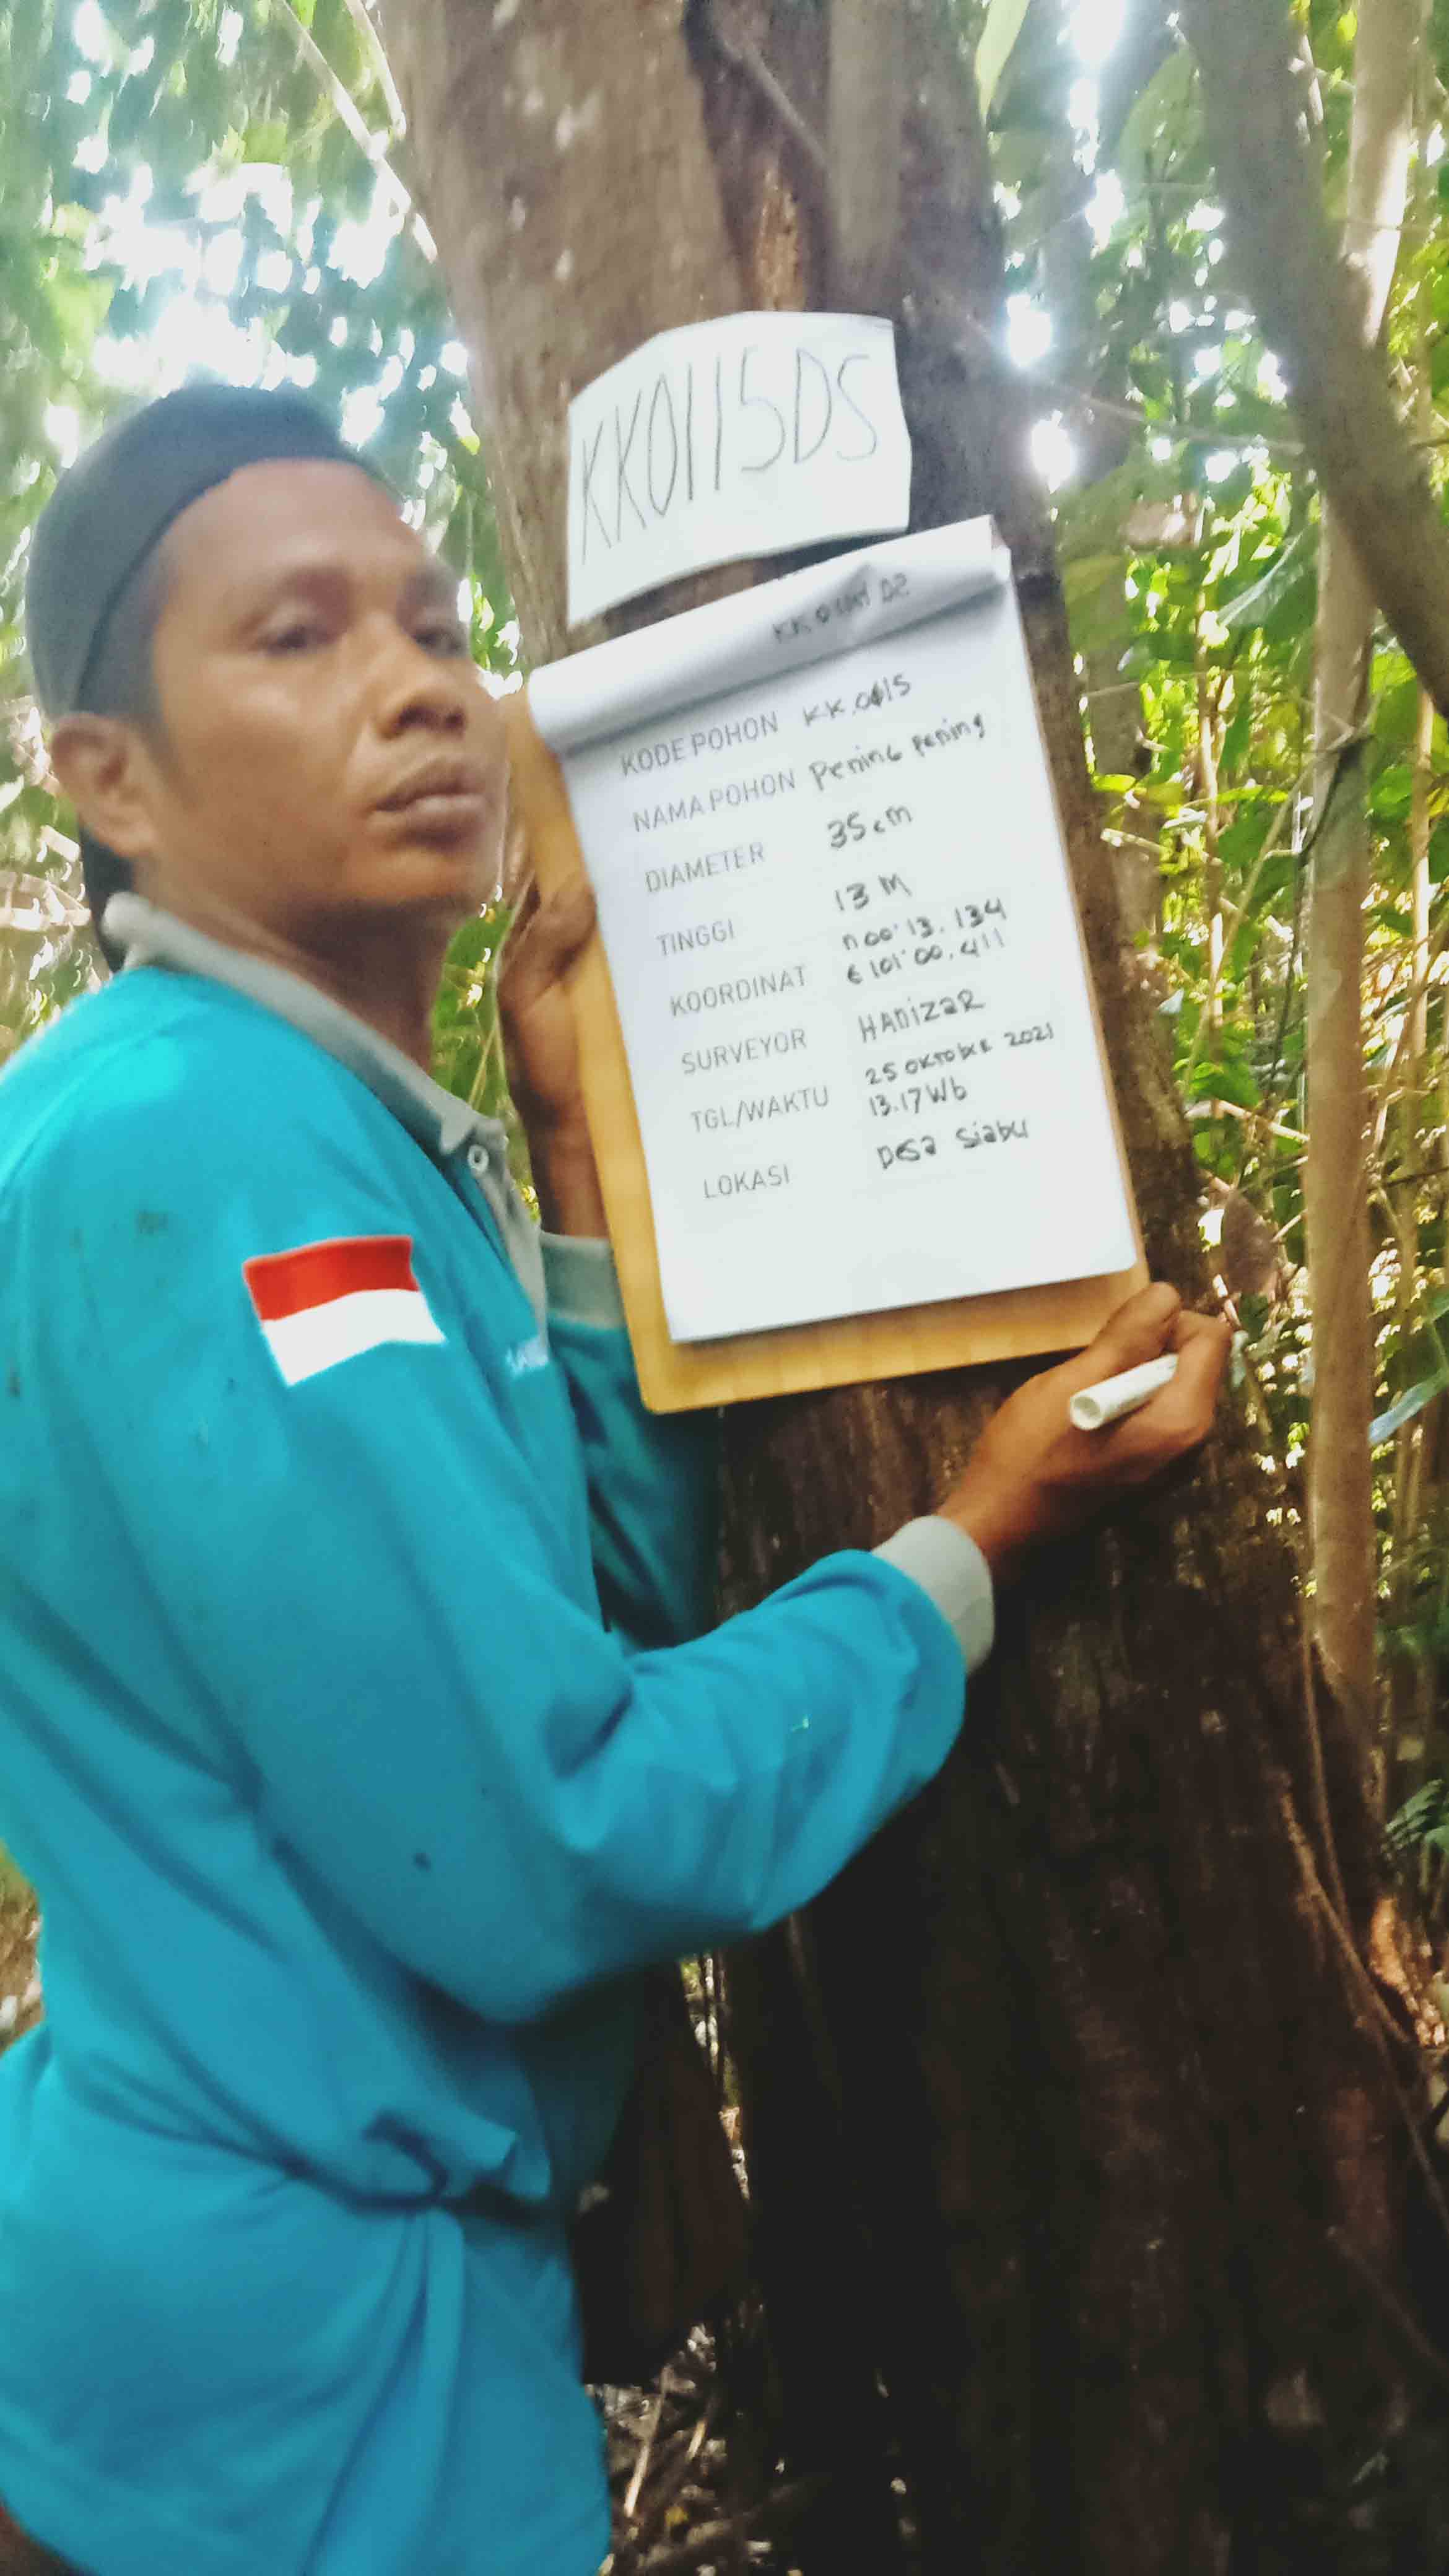 KK0115DS
KODE POHON KK.0115
NAMA POHON Pening pening
DIAMETER 35 cm
TINGGI 13 M
KOORDINAT n 00° 13. 134
E 101° 00. 411
SURVEYOR HADIZAR
TGL/WAKTU 25 OKTOBER 2021
13.17 Wb
LOKASI Desa Siabu